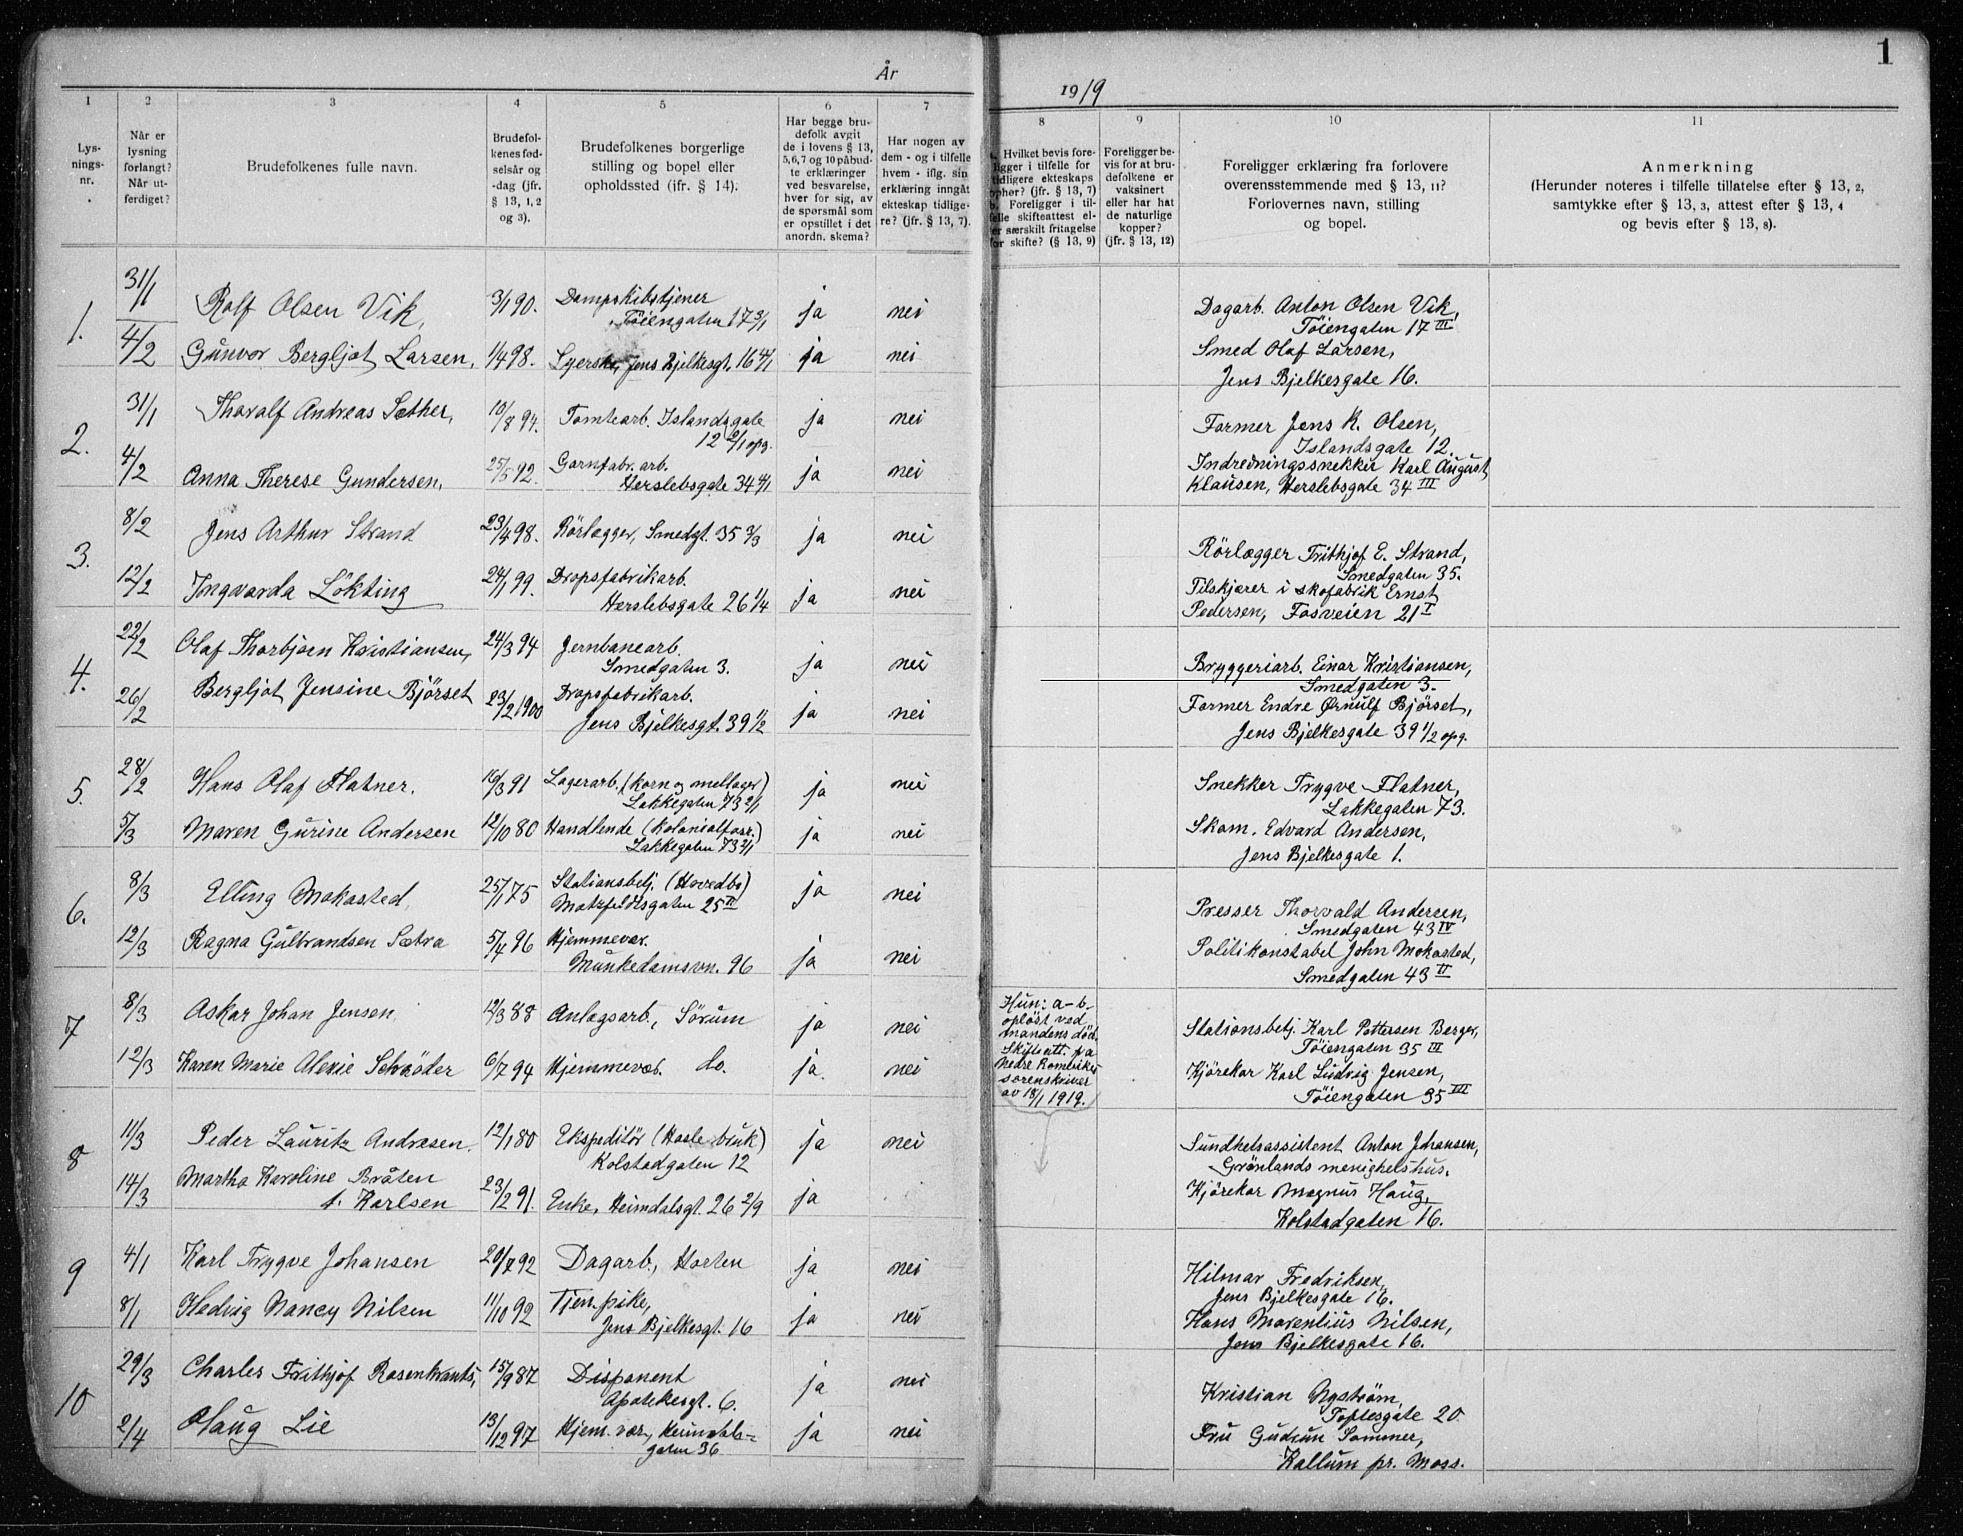 1
År 1919
1 2 3 4 5 6 7 8 9 10 11
Lysnings-nr.
Når er lysning forlangt? Når utferdiget?
Brudefolkenes fulle navn.
Brudefolkenes fødselsår og -dag (jfr. § 13, 1, 2 og 3).
Brudefolkenes borgerlige stilling og bopel eller opholdssted (ifr. § 14).
Har begge brudefolk avgit de i lovens § 13, 5,6,7 og 10 påbudte erklæringer ved besvarelse, hver for sig, av de spørsmål som er opstillet i det anordn. skema?
Har nogen av dem - og i tilfelle hvem - iflg. sin erklæring inngåt ekteskap tidligere? (jfr. § 13, 7).
Hvilket bevis foreligger i tilfelle for tidligere ekteskaps ophør? (jfr. § 13, 7) b. Foreligger i tilfelle skifteattest eller særskilt fritagelse for skifte? (§ 13, 9)
Foreligger bevis for at brudefolkene er vaksinert eller har hat de naturlige kopper? (jfr. § 13, 12)
Foreligger erklæring fra forlovere overensstemmende med § 13, 11? Forlovernes navn, stilling og bopel.
Anmerkning (Herunder noteres i tilfelle tillatelse efter § 13, 2, samtykke efter § 13, 3, attest efter § 13, 4 og bevis efter § 13, 8).
1. 31/1 Rolf Olsen Vik, 3/1 90. Dampskibstjener Tøiengaten 17 3/1 ja nei Dagarb. Anton Olsen Vik, Tøiengaten 17 III
4/2 Gunvor Bergljot Larsen, 1/4 98. Syerske, Jens Bjelkesgt. 16 4/1 ja nei Smed Olaf Larsen, Jens Bjelkesgate 16.
2. 31/1 Thoralf Andreas Sæther, 10/8 94. Tomtearb. Islandsgate 12 2/1 opg. ja nei Former Jens K. Olsen, Islandsgate 12.
4/2 Anna Therese Gundersen, 25/5 92. Garnfabr. arb. Herslebsgate 34 4/1 ja nei Indredningssnekker Karl August Klausen, Herslebsgate 34 III
3. 8/2 Jens Arthur Strand 23/4 98. Rörlægger, Smedgt. 35 3/3 ja nei Rörlægger Frithjof E. Strand, Smedgaten 35.
12/2 Ingvarda Lökting 24/1 99. Dropsfabrikarb. Herslebsgate 26 1/4 ja nei Tilskjærer i skofabrik Ernst Pedersen, Fosveien 21 I
4. 22/2 Olaf Thorbjörn Kristiansen, 24/3 94 Jernbanearb. Smedgaten 3. ja nei Bryggeriarb. Einar Kristiansen, Smedgaten 3.
26/2 Bergljot Jensine Bjørset 23/2 1900 Dropsfabrikarb. Jens Bjelkesgt. 39 1/2 ja nei Former Endre Ørnulf Bjørset, Jens Bjelkesgate 39 1/2 opg.
5. 28/2 Hans Olaf Flatner. 16/3 91 Lagerarb. (korn og mellager) Lakkegaten 73 2/1 ja nei Snekker Trygve Flatner, Lakkegaten 73.
5/3 Maren Gurine Andersen 12/10 80 Handlende (kolonialforr.) Lakkegaten 73 2/1 ja nei Skom. Edvard Andersen, Jens Bjelkesgate 1.
6. 8/3 Elling Mokasted 25/1 75 Stationsbetj. (Hovedb.) 25 II ja nei Presser Thorvald Andersen, Smedgaten 43 IV
12/3 Ragna Gulbrandsen Sætra 5/4 96 Hjemmevær. Munkedamsvn. 96 ja nei Politikonstabel John Mokasted, Smedgaten 43 II
7 8/3 Askar Johan Jensen 12/3 88 Anlægsarb., Sørum ja nei Stationsbetj. Karl Pettersen Berger, Tøiengaten 35 III
12/3 Karen Marie Alexie Schrøder 6/7 94 Hjemmevær. do. ja. nei Hun: a-b opløst ved mandens död. Skifteatt. fra Nedre Romerikes sorenskriver av 18/1 1919. Kjörekar Karl Ludvig Jensen, Tøiengaten 35 III
8 11/3 Peder Lauritz Andresen. 12/1 80 Ekspeditör (Hasle bruk) Kolstadgaten 12 ja nei Sundhetsassistent Anton Johansen, Grønlands menighetshus.
14/3 Martha Karoline Bråten f. Karlsen 23/2 91. Enke, Heimdalsgt. 26 2/9 ja Kjörekar Magnus Haug, Kolstadgaten 16.
9 4/1 Karl Trygve Johansen 20/7 92 Dagarb., Horten ja nei Hilmar Fredriksen, Jens Bjelkesgate 16.
8/1 Hedvig Nancy Nilsen 11/10 92 Tjen.pike, Jens Bjelkesgt. 16 ja nei Hans Marentius Nilsen, Jens Bjelkesgate 16.
10 29/3 Charles Frithjof Rosenkrants, 15/9 87 Disponent Apotekergt. 6. ja nei Kristian Nyström, Toftesgate 20
2/4 Olaug Lie 13/12 97 Hjem. vær., Heimdalsgaten 36 ja nei Fru Gudrun Sommer, Kallum pr. Moss.